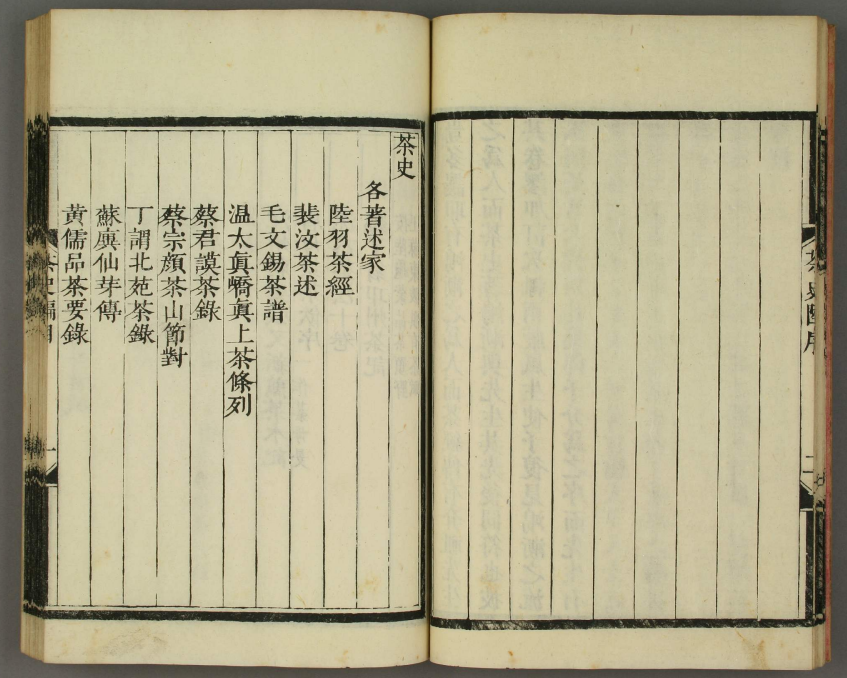 茶史
各著述家
陸羽茶經
裴汶茶述
毛文錫茶譜
温太眞嶠眞上茶條列
蔡君謨茶錄
蔡宗顔茶山節對
丁謂北苑茶錄
蘇廙仙芽傳
黄儒品茶要錄